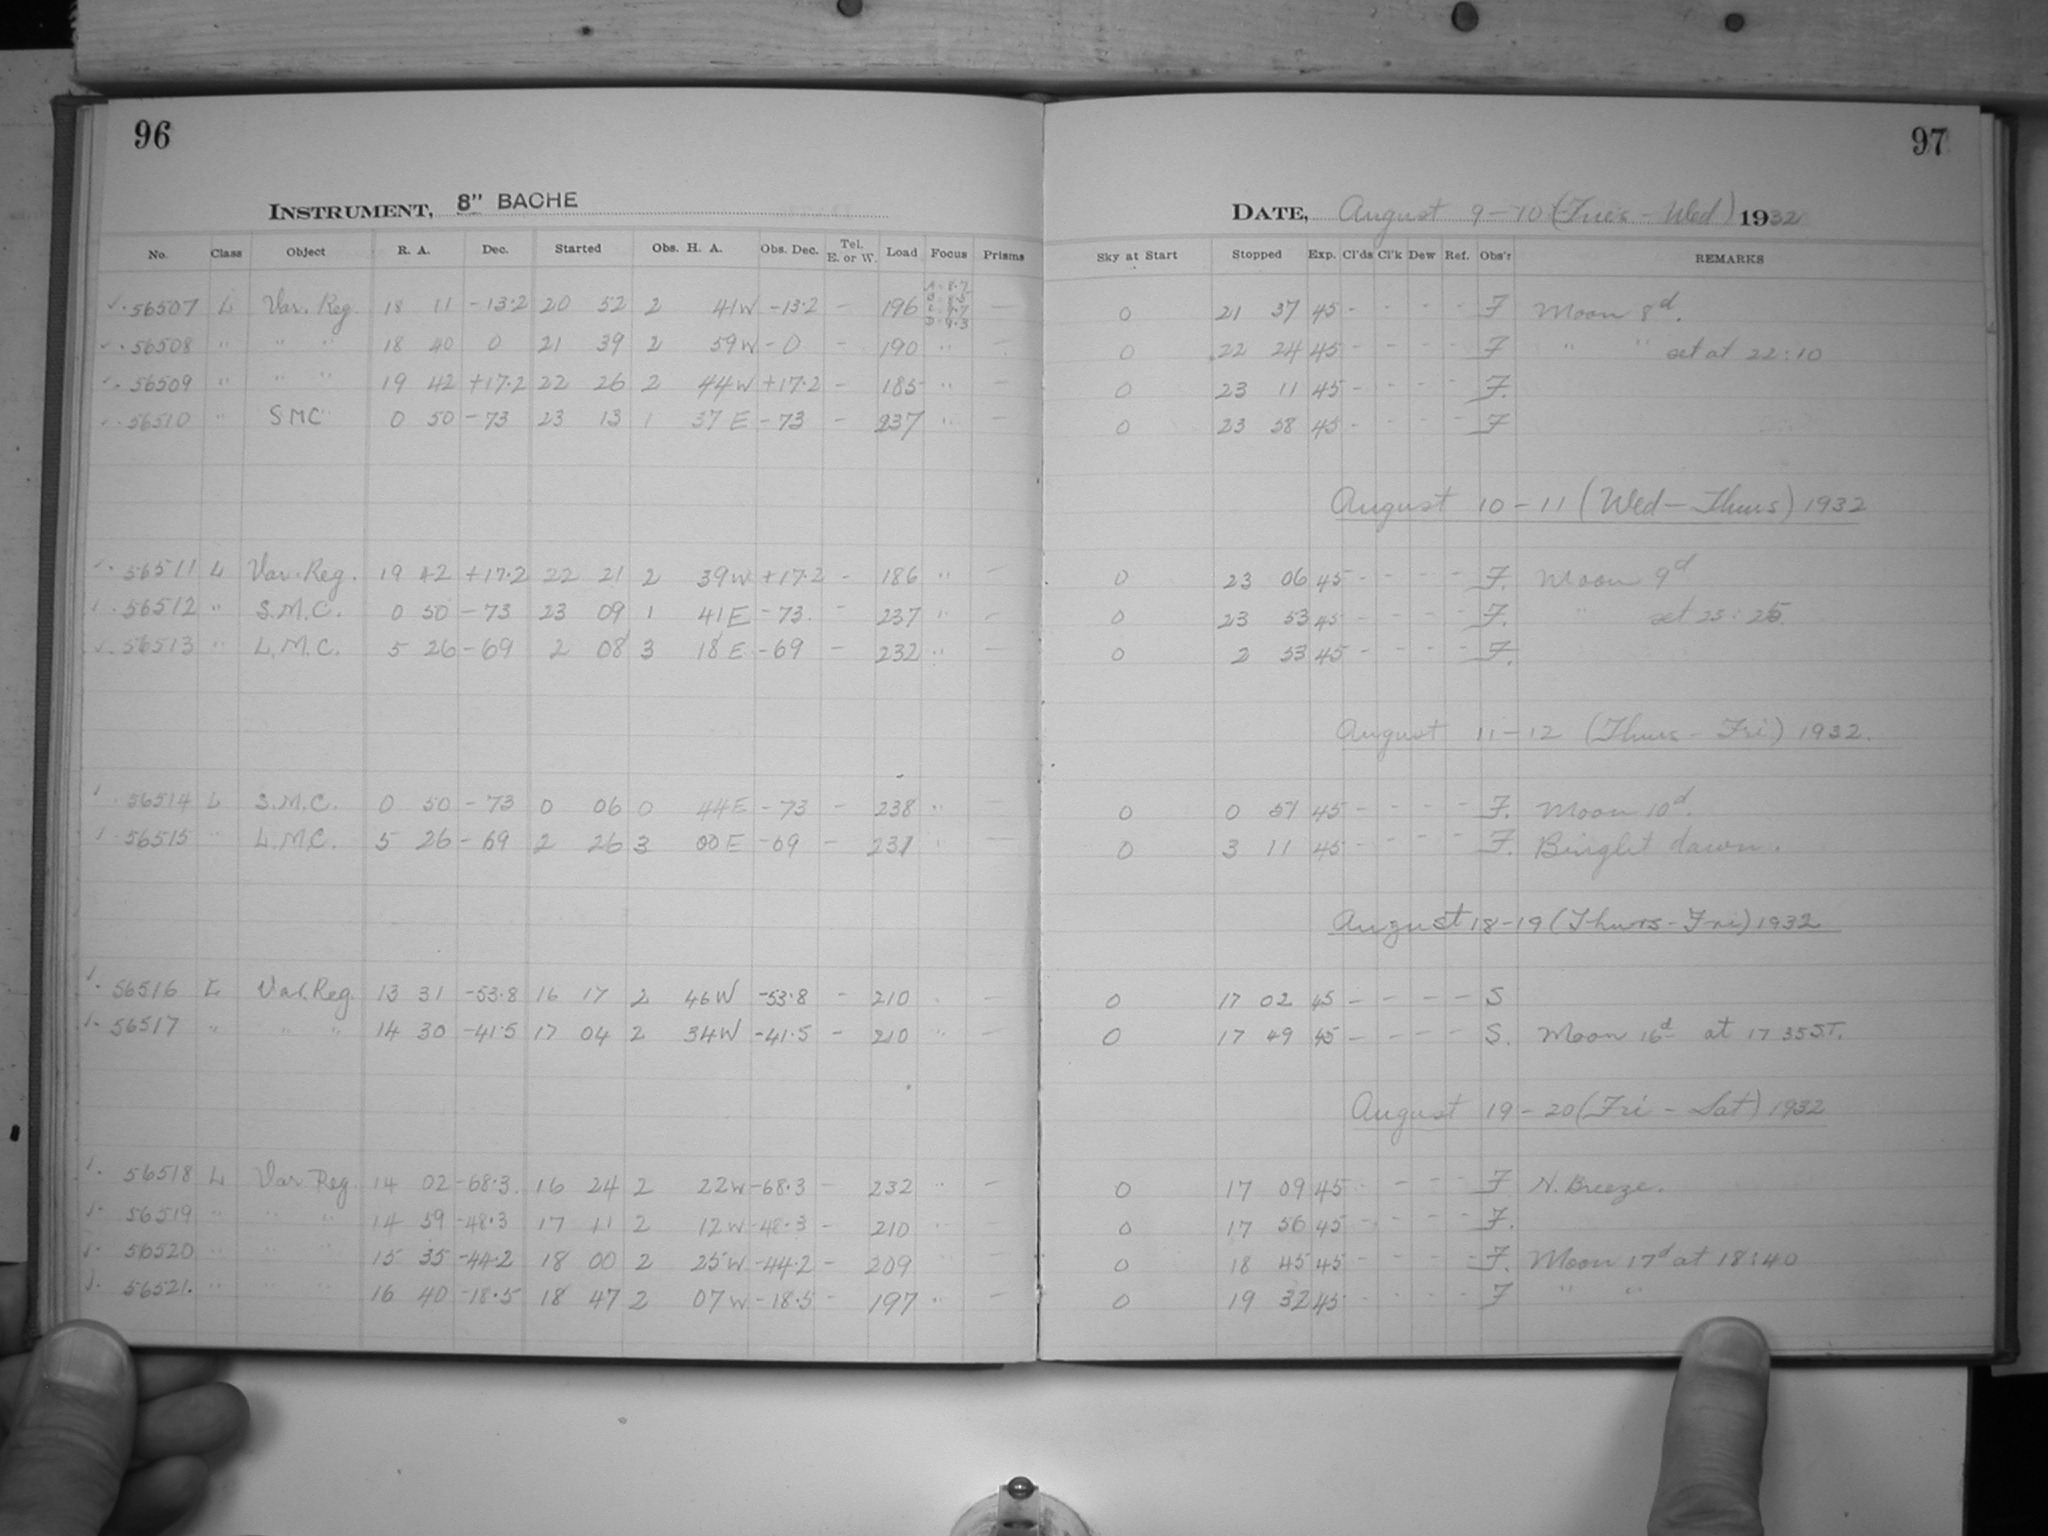 96
INSTRUMENT, 8" BACHE
No. Class Object R. A. Dec. Started Obs. H. A. Obs. Dec. Tel. E. or W. Load Focus Prisms
56507 L Var. Reg. 18 11 -13.2 20 52 2 41W -13.2 - 196 A-8.7 B-8.5 C-9.7 D-9.3 -
56508 " " " 18 40 0 21 39 2 59W -0 - 190 " -
56509 " " " 19 42 +17.2 22 26 2 44W +17.2 - 185 " -
56510 " SMC 0 50 -73 23 13 1 37E -73 - 237 " -
56511 L Var. Reg. 19 42 +17.2 22 21 2 39W +17.2 - 186 " -
56512 " S.M.C. 0 50 -73 23 09 1 41E -73 - 237 " -
56513 " L.M.C. 5 26 -69 2 08 3 18E -69 - 232 " -
56514 L S.M.C. 0 50 -73 0 06 0 44E -73 - 238 " -
56515 " L.M.C. 5 26 -69 2 26 3 00E -69 - 231 " -
56516 L Var. Reg. 13 31 -53.8 16 17 2 46W -53.8 - 210 " -
56517 " " " 14 30 -41.5 17 04 2 34W -41.5 - 210 " -
56518 L Var Reg. 14 02 -68.3 16 24 2 22W -68.3 - 232 " -
56519 " " " 14 59 -48.3 17 11 2 12W -48.3 - 210 " -
56520 " " " 15 35 -44.2 18 00 2 25W -44.2 - 209 " -
56521. " " " 16 40 -18.5 18 47 2 07W -18.5 - 197 " -
97
DATE, August 9-10 (Tues - Wed) 1932
Sky at Start Stopped Exp. Cl'ds Cl'k Dew Ref. Obs'r REMARKS
0 21 37 45 - - - - F Moon 8d.
0 22 24 45 - - - - F " " set at 22:10
0 23 11 45 - - - - F.
0 23 58 45 - - - - F
August 10-11 (Wed-Thurs) 1932
0 23 06 45 - - - - F. Moon 9d
0 23 53 45 - - - - F. " set 23:25
0 2 53 45 - - - - F.
August 11-12 (Thurs - Fri) 1932.
0 0 51 45 - - - - F. Moon 10d.
0 3 11 45 - - - - F. Bright dawn.
August 18-19 (Thurs-Fri) 1932
0 17 02 45 - - - - S
0 17 49 45 - - - - S. Moon 16d at 17 35 S.T.
August 19-20 (Fri - Sat) 1932
0 17 09 45 - - - - F N. Breeze.
0 17 56 45 - - - - F.
0 18 45 45 - - - - F. Moon 17d at 18:40
0 19 32 45 - - - - F " "